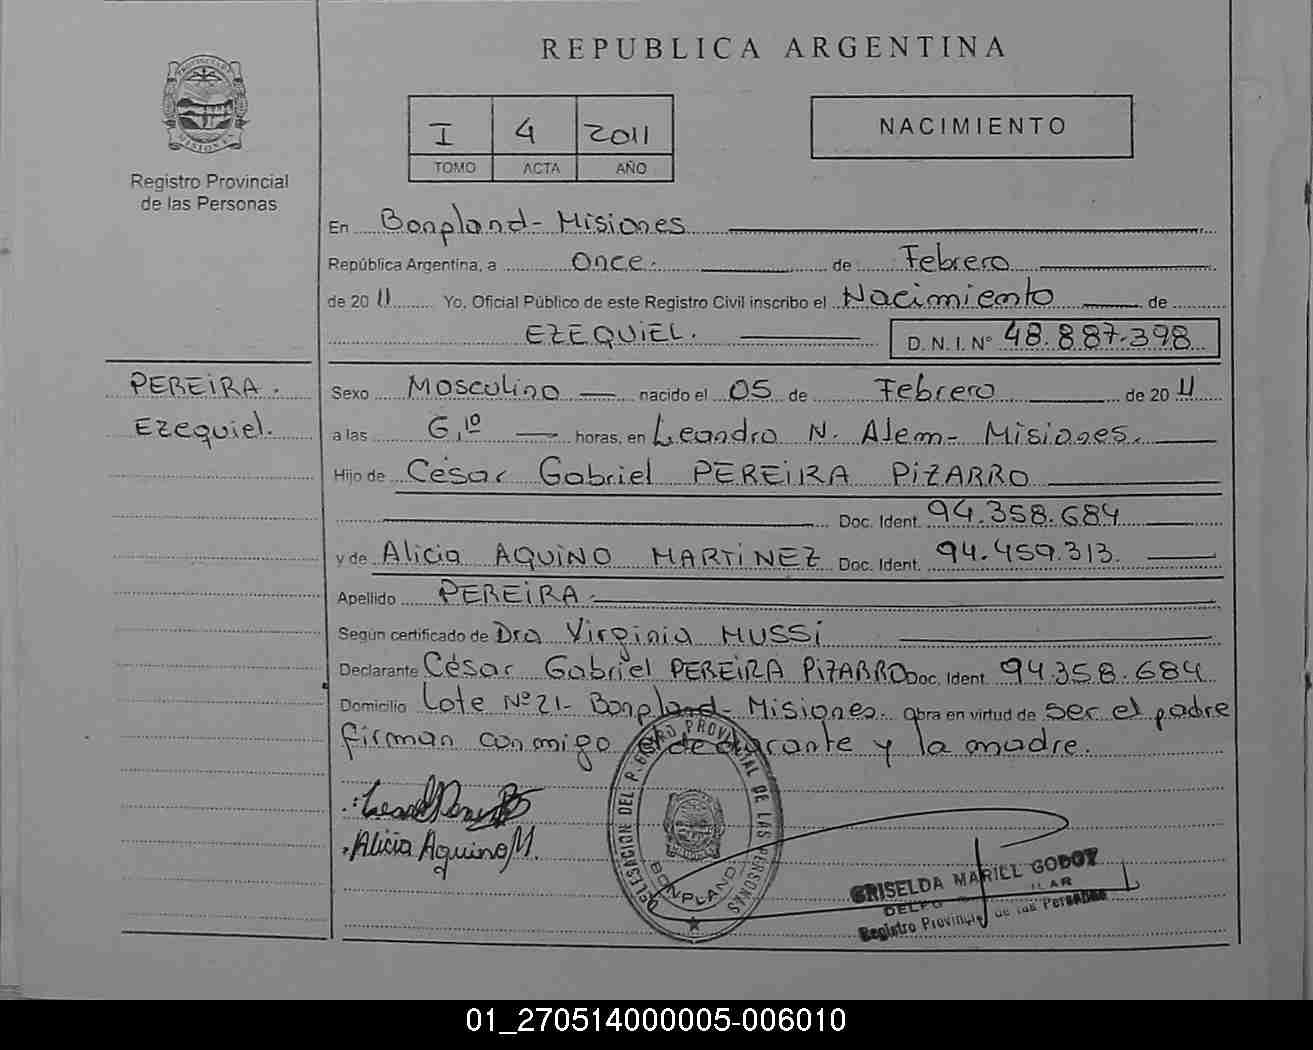 REPUBLICA ARGENTINA
I 4 2011
TOMO ACTA AÑO
NACIMIENTO
PROVINCIA DE MISIONES
Registro Provincial
de las Personas
En Bonpland - Misiones
República Argentina, a once. de Febrero
de 2011 Yo, Oficial Público de este Registro Civil inscribo el Nacimiento de
EZEQUIEL. D. N. I. N° 48.887.398
PEREIRA.
Ezequiel.
Sexo Masculino nacido el 05 de Febrero de 2011
a las 6,10 horas, en Leandro N. Alem - Misiones.
Hijo de César Gabriel PEREIRA PIZARRO
Doc. Ident. 94.358.684
y de Alicia AQUINO MARTINEZ Doc. Ident. 94.459.313.
Apellido PEREIRA.
Según certificado de Dra Virginia MUSSI
Declarante César Gabriel PEREIRA PIZARRO Doc. Ident. 94.358.684
Domicilio Lote N° 21 - Bonpland - Misiones obra en virtud de ser el padre
firman conmigo el declarante y la madre.
Alicia Aquino M.
DELEGACION DEL REGISTRO PROVINCIAL DE LAS PERSONAS
BONPLAND
GRISELDA MARIEL GODOY
Registro Provincial de las Personas
01_270514000005-006010